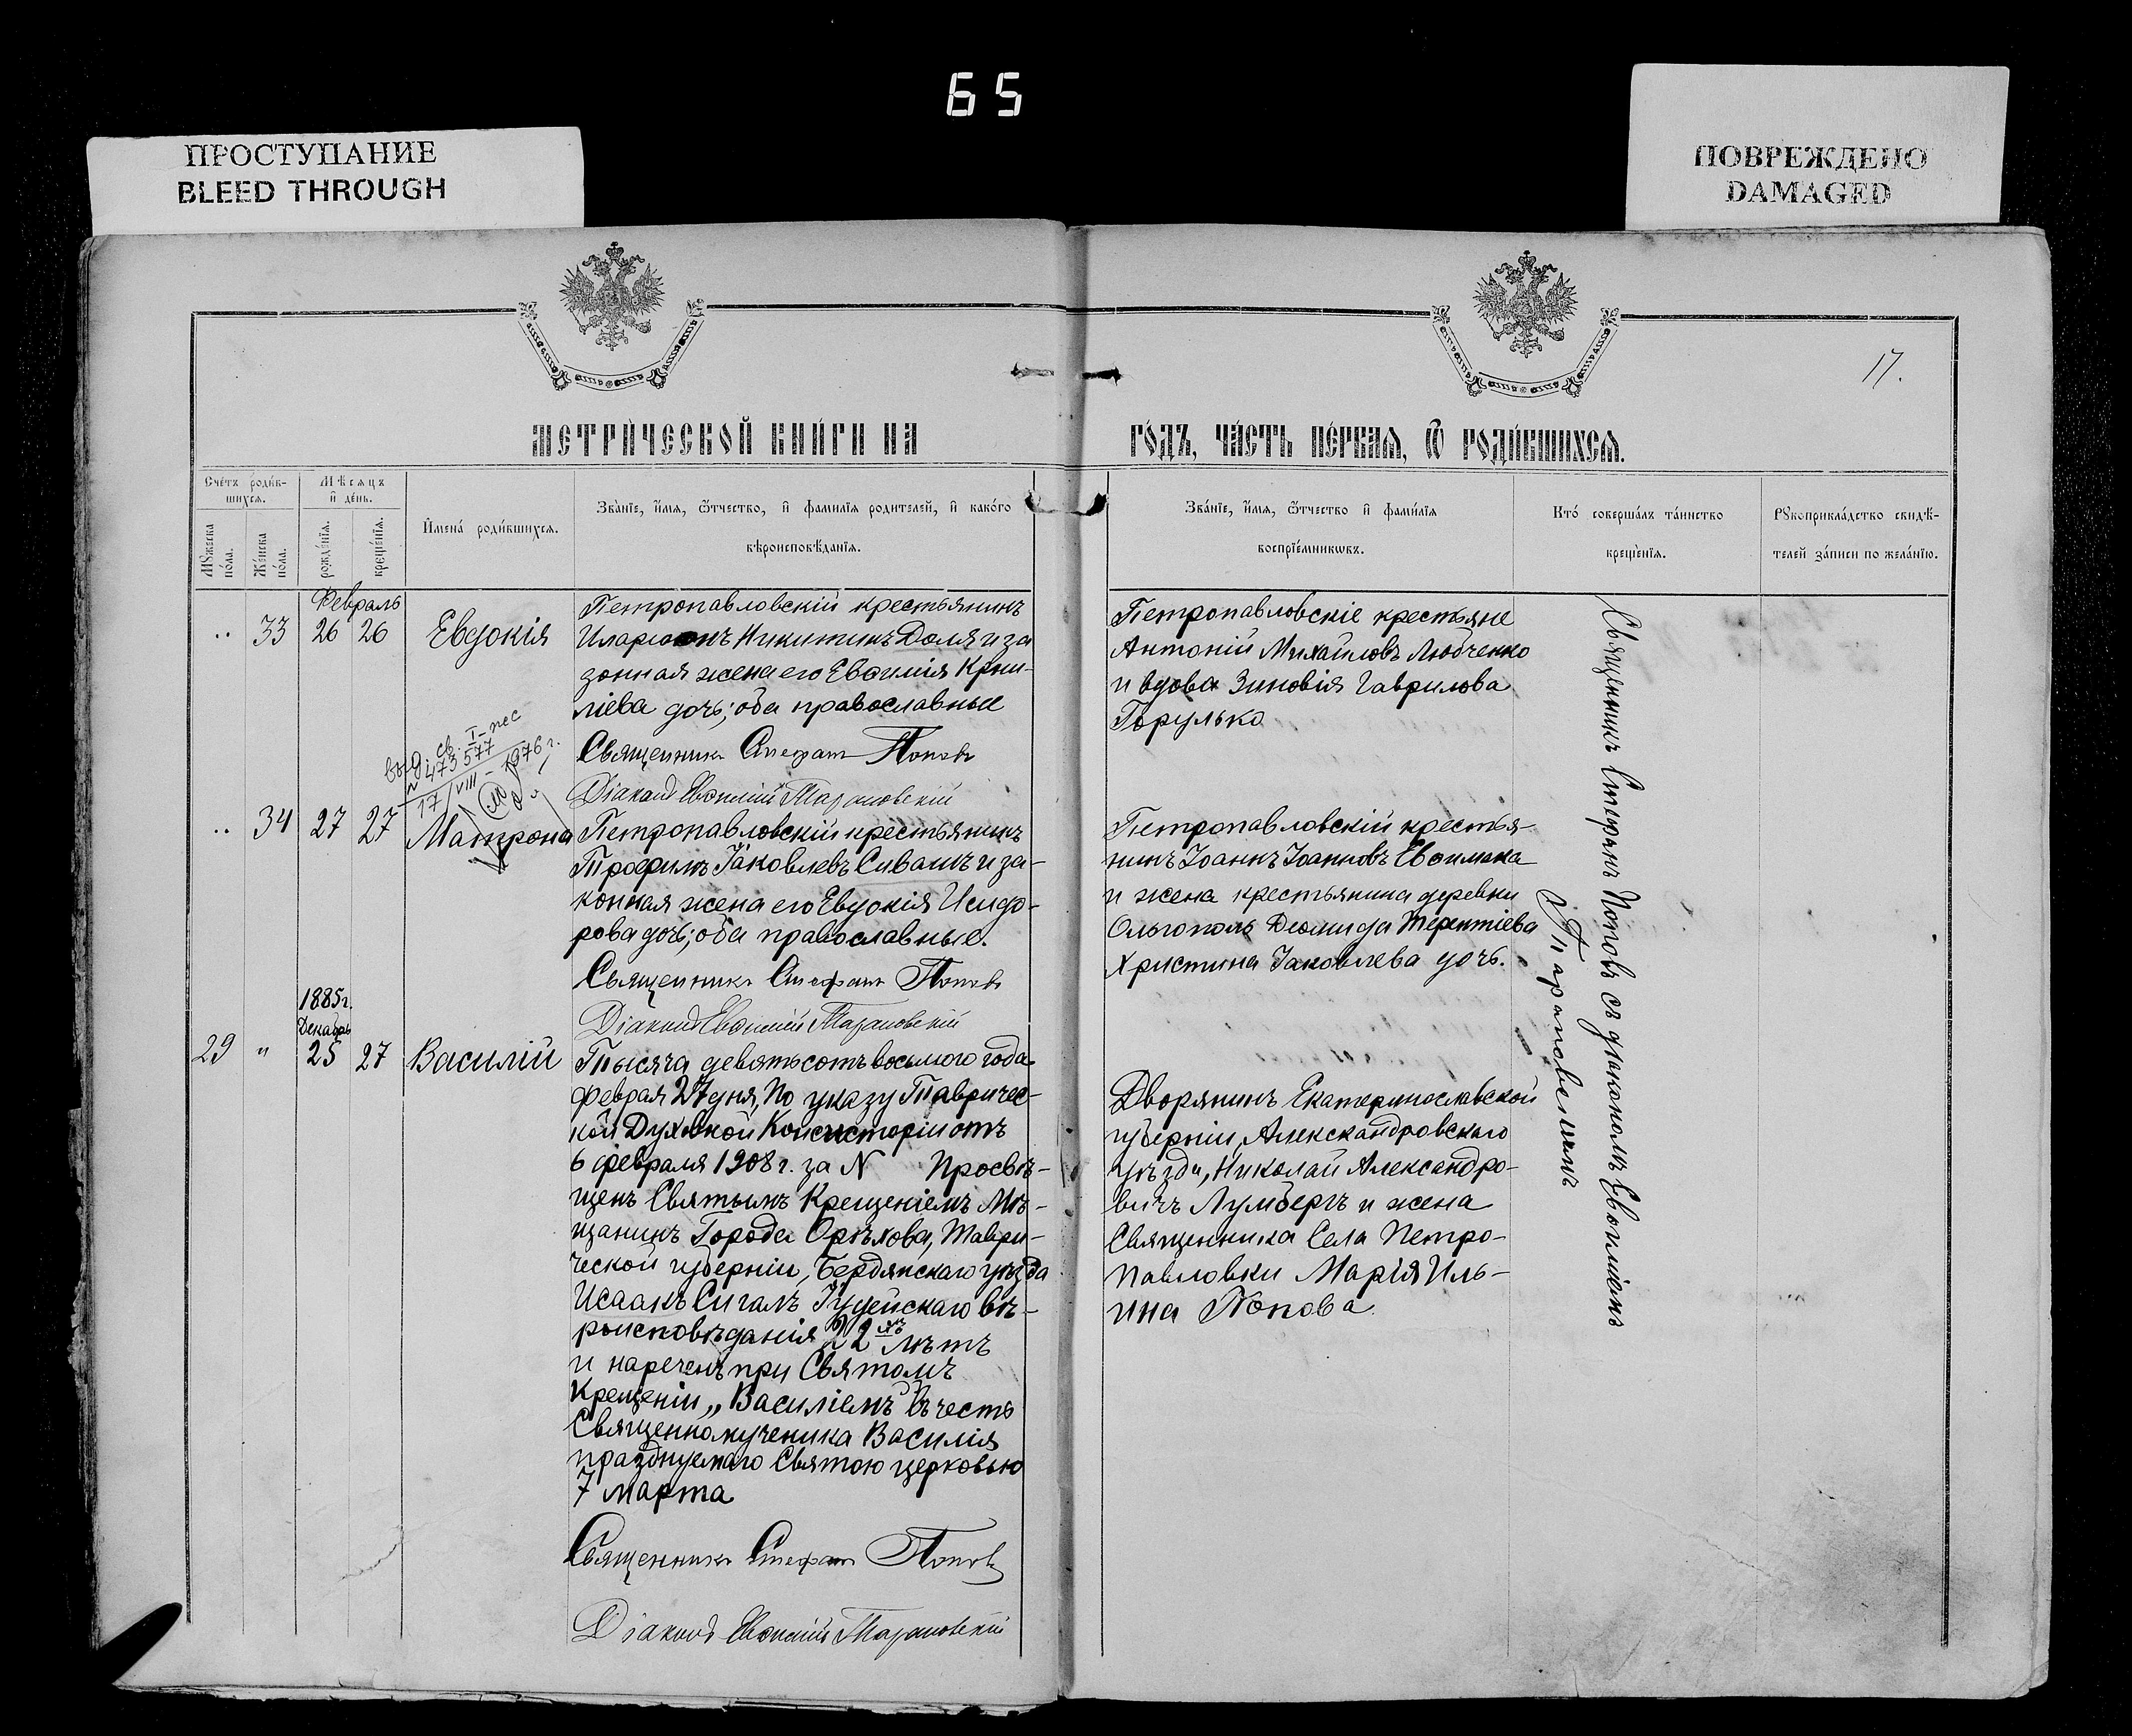 65
ПРОСТУПАНИЕ
BLEED THROUGH
ПОВРЕЖДЕНО
DAMAGED
17.
МЕТРИ́ЧЕСКОЙ КНИ́ГИ НА
ГО́ДЪ, ЧА́СТЬ ПЕ́РВАЯ, Ѿ РОДИ́ВШИХСЯ.
Сче́тъ роди́в-
шихся.
Мѣсяцъ
и де́нь.
Мꙋжеска
по́ла.
Же́нска
по́ла.
рожде́нїя.
креще́нїя.
Имена́ роди́вшихся.
Зва́нїе, и́мя, ѻ́тчество, и фами́лїя родителей, и како́го
вѣроисповѣ́данїя.
Зва́нїе, и́мя, ѻ́тчество и фами́лїя
воспрїе́мникѡвъ.
Кто́ соверша́лъ та́инство
креще́нїя.
Рꙋкоприкла́дство свидѣ́-
телей за́писи по жела́нїю.
Февраль
33 26 26 Евдокія
Петропавловскій крестьянинъ
Иларіонъ Никитинъ Доля и за
зонная жена его Евѳимія Кри-
ліева дочь; оба православные
Священникъ Стефанъ Поповъ
Діаконъ Евѳимій Тарановскій
Петропавловскіе крестьяне
Антоній Михайловъ Любченко
и вдова Зиновія Гаврилова
Горулько
св. I-пес
473577
17/VIII-1976 г.
34 27 27 Матрона
Петропавловскій крестьянинъ
Трофимъ Іаковлевъ Сивашъ и за-
конная жена его Евдокія Исидо-
рова дочь; оба православные.
Священникъ Стефанъ Поповъ
Діаконъ Евѳимій Тарановскій
Петропавловскій крестья-
нинъ Іоаннъ Іоанновъ Евѳимека
и жена крестьянина деревни
Ольгополь Деомида Терентіева
Христина Іаковлева дочь.
1885 г.
Декабрь
29 " 25 27 Василій
Тысяча девятьсотъ восьмого года
феврая 27 дня, По указу Тавричес-
кой Духовной Консисторіи отъ
6 февраля 1908 г. за N Просвѣ-
щенъ Святымъ Крещеніемъ Мѣ-
щанинъ Города Орѣхова, Таври-
ческой губерніи, Бердянскаго уѣзда
Исаакъ Сигалъ Іудейскаго вѣ-
роисповѣданія 22хъ лѣтъ
и нареченъ при Святомъ
Крещеніи „Василіемъ" въ честь
Священномученика Василія
празднуемаго Святою церковью
7 марта
Священникъ Стефанъ Поповъ
Діаконъ Евѳимій Тарановскій
Дворянинъ Екатеринославской
губерніи, Александровскаго
уѣзда, Николай Александро-
вичъ Лумбергъ и жена
Священника Села Петро-
павловки Марія Иль-
ина Попова
Священникъ Стефанъ Поповъ съ діакономъ Евѳиміемъ
Тарановскимъ